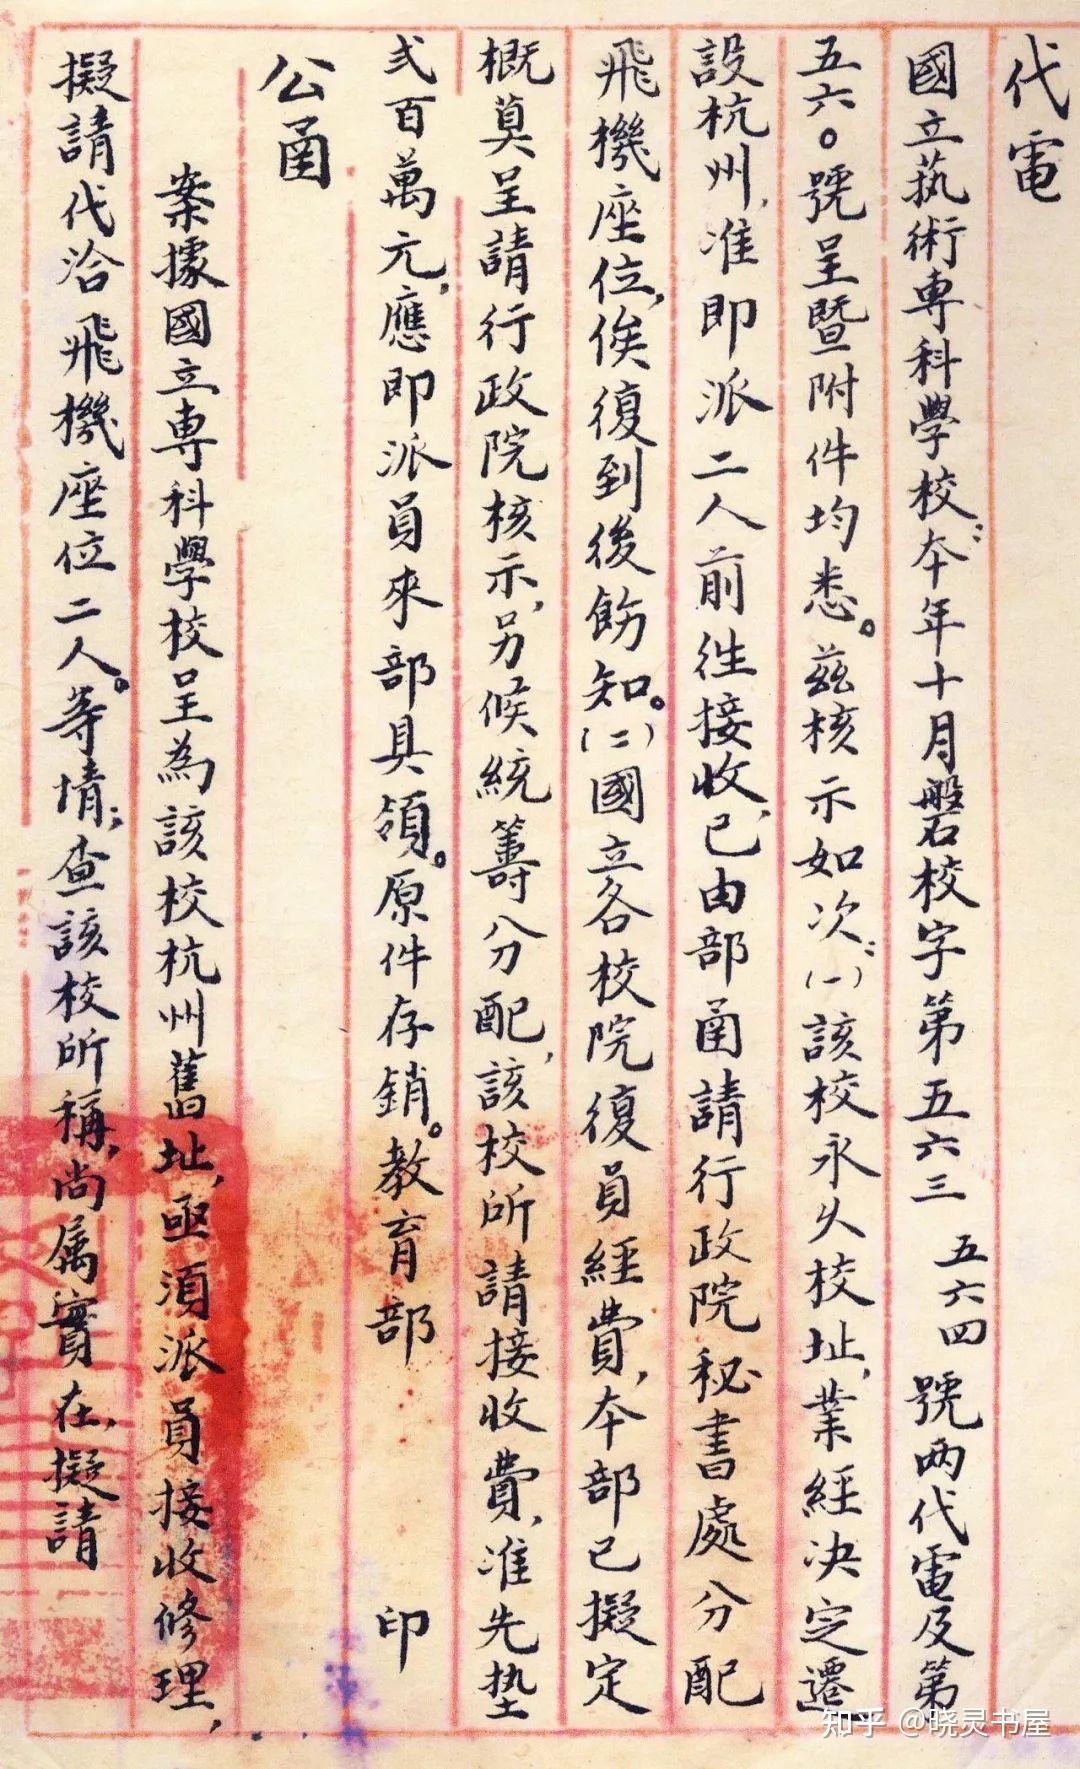 代電
國立藝術專科學校：本年十月磐校字第五六三 五六四號两代電及第
五六〇號呈暨附件均悉。茲核示如次：(一)該校永久校址，業經决定遷
設杭州，准即派二人前徃接收，已由部函請行政院秘書處分配
飛機座位，俟復到後飭知。(二)國立各校院復員經費，本部已擬定
概算呈請行政院核示，另候統籌分配，該校所請接收費，准先墊
弍百萬元，應即派員來部具領。原件存銷。教育部 印
公函
案據國立專科學校呈為該校杭州舊址，亟須派員接收修理，
擬請代洽飛機座位二人。等情；查該校所稱，尚属實在，擬請
知乎 @晓灵书屋